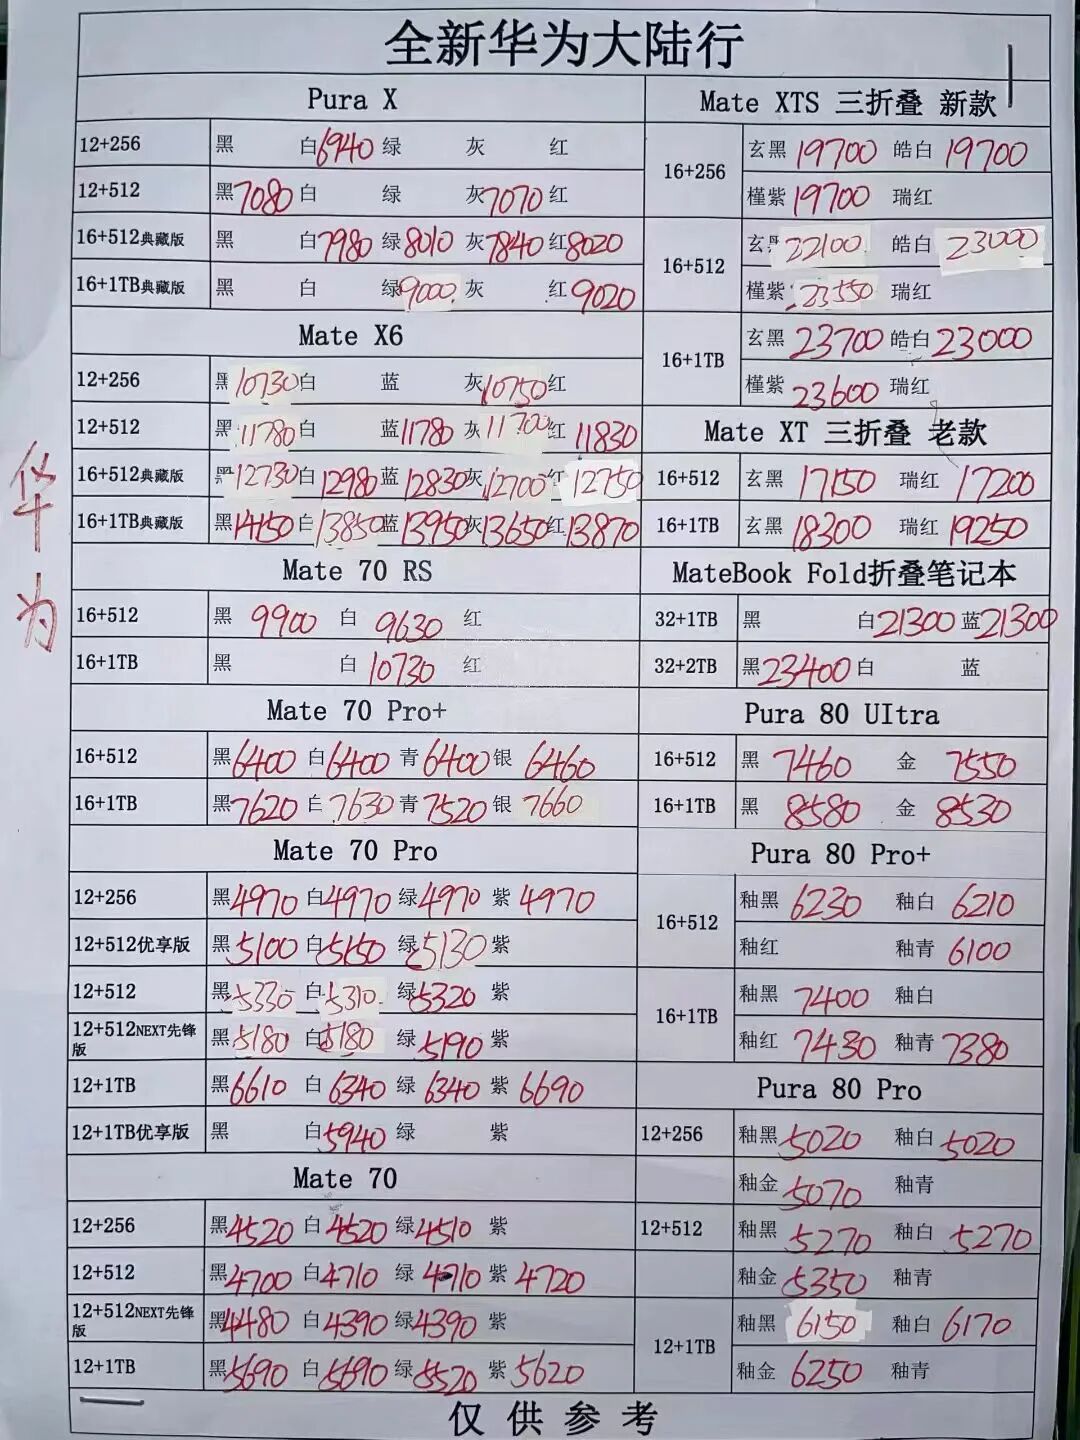 全新华为大陆行
Pura X
12+256 黑 白6940 绿 灰 红
12+512 黑7080 白 绿 灰7070 红
16+512典藏版 黑 白7980 绿8010 灰7840 红8020
16+1TB典藏版 黑 白 绿9000 灰 红9020
Mate X6
12+256 黑10730 白 蓝 灰10750 红
12+512 黑11780 白 蓝11780 灰11700 红11830
16+512典藏版 黑12730 白12980 蓝12830 灰12700 红12750
16+1TB典藏版 黑14150 白13850 蓝13950 灰13650 红13870
Mate 70 RS
16+512 黑 9900 白 9630 红
16+1TB 黑 白 10730 红
Mate 70 Pro+
16+512 黑6400 白6400 青6400 银 6460
16+1TB 黑7620 白7630 青7520 银 7660
Mate 70 Pro
12+256 黑4970 白4970 绿4970 紫 4970
12+512优享版 黑5100 白5150 绿5130 紫
12+512 黑5330 白5310 绿5320 紫
12+512NEXT先锋版 黑5180 白5180 绿5190 紫
12+1TB 黑6610 白6340 绿6340 紫6690
12+1TB优享版 黑 白5940 绿 紫
Mate 70
12+256 黑4520 白4520 绿4510 紫
12+512 黑4700 白4710 绿4710 紫4720
12+512NEXT先锋版 黑4480 白4390 绿4390 紫
12+1TB 黑5690 白5690 绿5520 紫5620
Mate XTS 三折叠 新款
16+256 玄黑 19700 皓白 19700
槿紫 19700 瑞红
16+512 玄黑 22100 皓白 23000
槿紫 23550 瑞红
16+1TB 玄黑 23700 皓白 23000
槿紫 23600 瑞红
Mate XT 三折叠 老款
16+512 玄黑 17150 瑞红 17200
16+1TB 玄黑 18300 瑞红 19250
MateBook Fold折叠笔记本
32+1TB 黑 白21300 蓝21300
32+2TB 黑23400 白 蓝
Pura 80 UItra
16+512 黑 7460 金 7550
16+1TB 黑 8580 金 8530
Pura 80 Pro+
16+512 釉黑 6230 釉白 6210
釉红 釉青 6100
16+1TB 釉黑 7400 釉白
釉红 7430 釉青 7380
Pura 80 Pro
12+256 釉黑 5020 釉白 5020
釉金 5070 釉青
12+512 釉黑 5270 釉白 5270
釉金 5350 釉青
12+1TB 釉黑 6150 釉白 6170
釉金 6250 釉青
仅供参考
华为